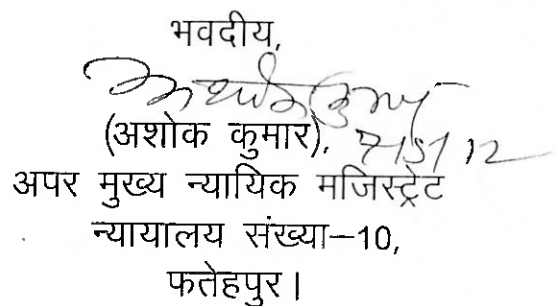 भवदीय,
(अशोक कुमार),
अपर मुख्य न्यायिक मजिस्ट्रेट
न्यायालय संख्या–10,
फतेहपुर।